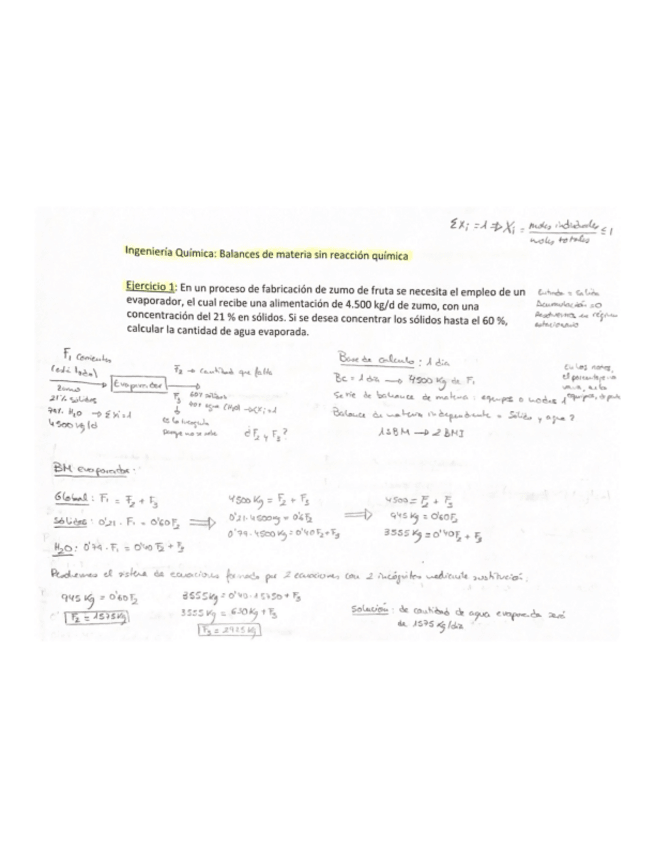 Σxᵢ = 1 ⇒ Xᵢ = moles individuales / moles totales ≤ 1
Ingeniería Química: Balances de materia sin reacción química
Ejercicio 1: En un proceso de fabricación de zumo de fruta se necesita el empleo de un
evaporador, el cual recibe una alimentación de 4.500 kg/d de zumo, con una
concentración del 21 % en sólidos. Si se desea concentrar los sólidos hasta el 60 %,
calcular la cantidad de agua evaporada.
Entrada = Salida
Acumulación = 0
F₁ corrientes
zumo
21% sólidos
H₂O → Σxᵢ = 1
4500 kg/d
Evaporador
F₂ → cantidad que falta
F₃
60% sólidos
40% agua (H₂O)
¿F₂ y F₃?
Base de cálculo: 1 día
BC = 1 día → 4500 kg de F₁
Serie de balance de materia: equipos o nodos 1
Balance de materia independiente = Sólidos y agua 2
1 SBM → 2 BMI
BM evaporador:
Global: F₁ = F₂ + F₃
Sólidos: 0'21 · F₁ = 0'60F₂
H₂O: 0'79 · F₁ = 0'40 F₂ + F₃
4500 Kg = F₂ + F₃
0'21·4500Kg = 0'6F₂
0'79·4500Kg = 0'40F₂+F₃
4500 = F₂ + F₃
945 Kg = 0'60F₂
3555Kg = 0'40F₂ + F₃
Resolvemos el sistema de ecuaciones formado por 2 ecuaciones con 2 incógnitas mediante sustitución:
945 Kg = 0'60F₂
F₂ = 1575Kg
3555Kg = 0'40·1575 + F₃
3555Kg = 630Kg + F₃
Solución: de cantidad de agua evaporada será
de 1575 Kg/día